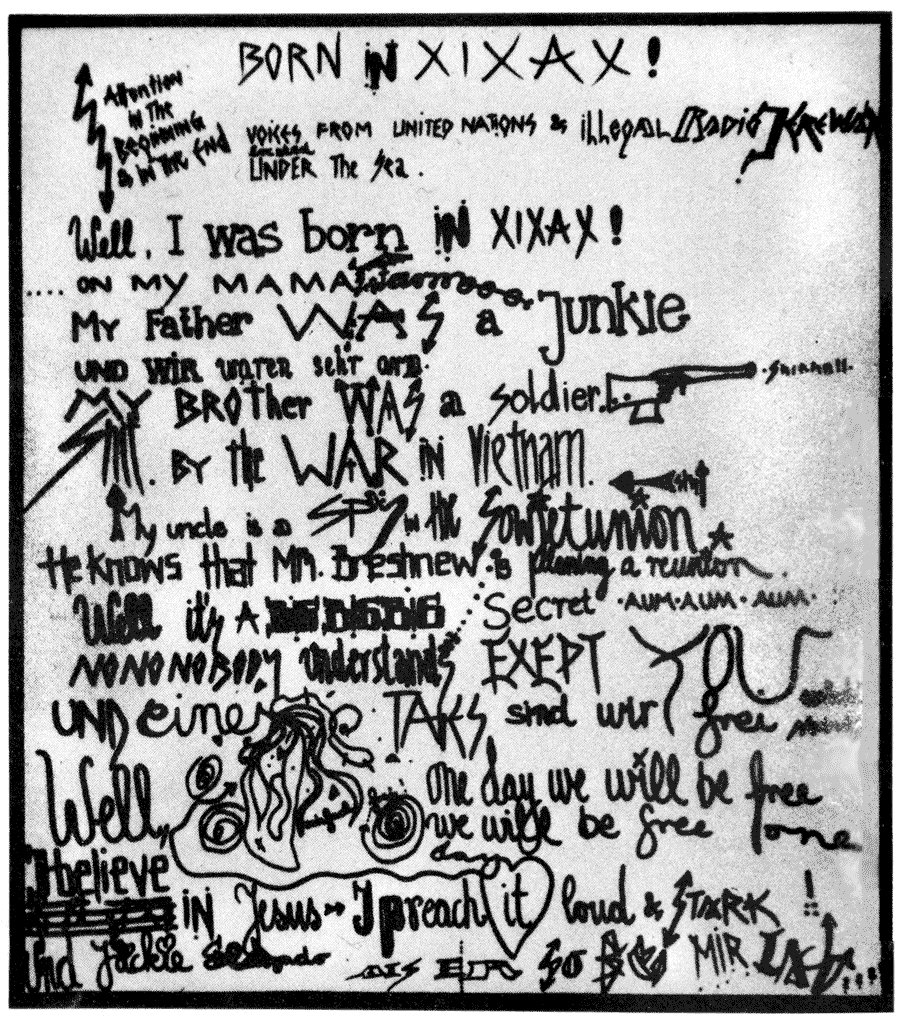 BORN IN XIXAX!
Attention
in the
Beginning
& in the End
VOICES FROM UNITED NATIONS & illegal Radio Jerewan
UNDER the Sea.
Well, I was born IN XIXAX!
.... ON MY MAMA
MY Father WAS a Junkie
UND WIR waren sehr arm.
MY BROTHER WAS a soldier.
BY the WAR IN Vietnam.
My uncle is a SPY in the Sowjetunion
He knows that Mr. Breshnew is planning a reunion.
Well it's A BIG BIG Secret ·AUM·AUM·AUM·
NO NO NOBODY understands EXEPT YOU
UND eines TAGES sind wir free
Well, one day we will be free
we will be free one
day
I believe
IN Jesus I preach it loud & STARK !
und Jackie
MIR